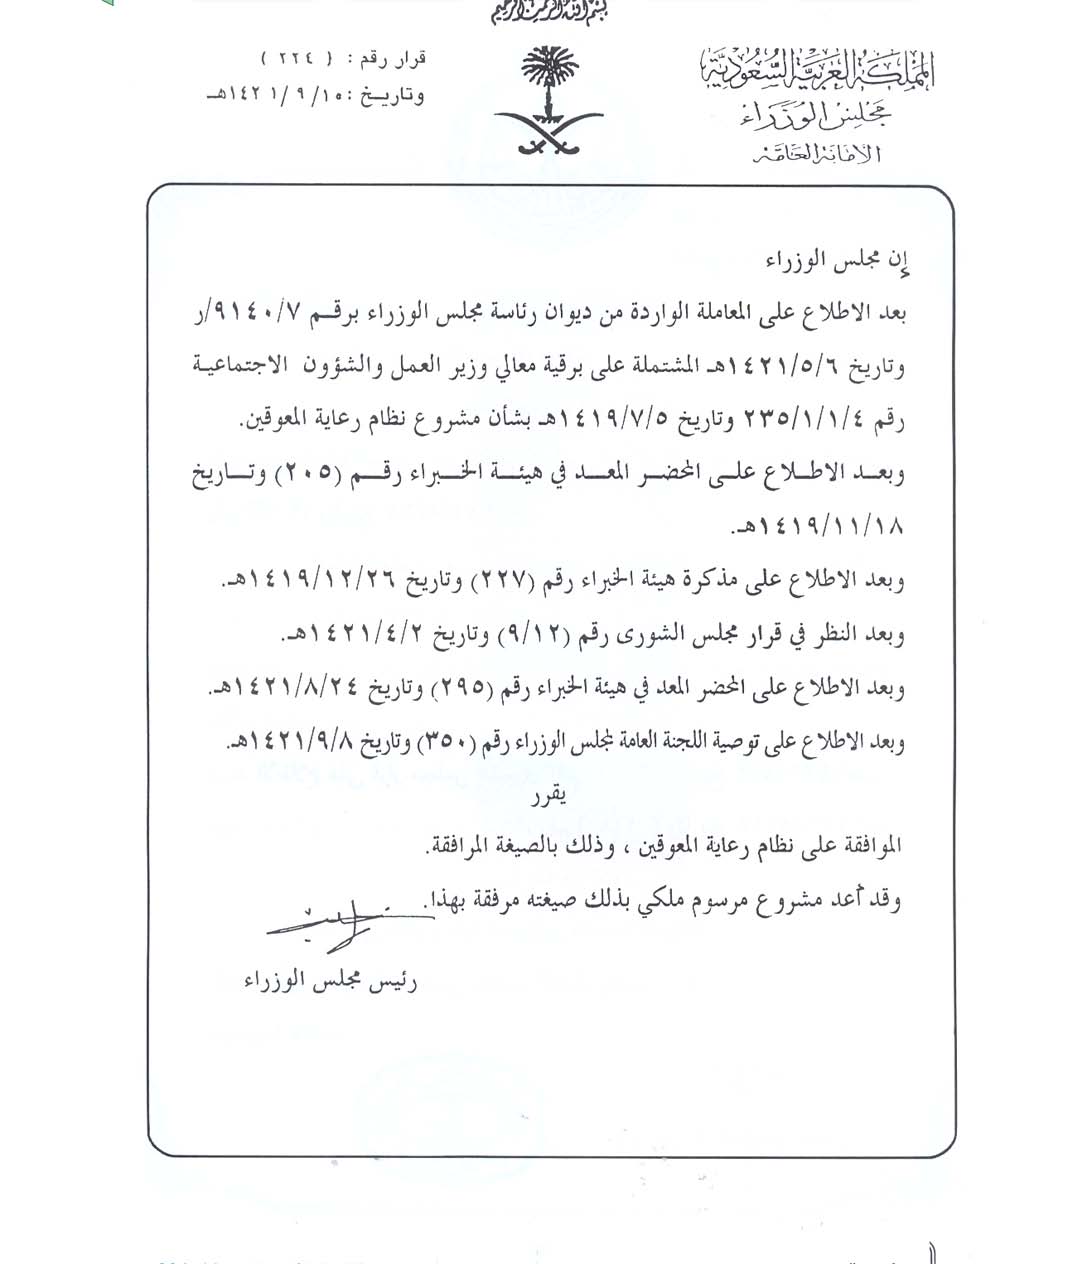 بسم الله الرحمن الرحيم
المملكة العربية السعودية
مجلس الوزراء
الأمانة العامة
قرار رقم : ( ٢٢٤ )
وتاريخ : ١٤٢١/٩/١٠هـ
إن مجلس الوزراء
بعد الاطلاع على المعاملة الواردة من ديوان رئاسة مجلس الوزراء برقم ٩١٤٠/٧/ر
وتاريخ ١٤٢١/٥/٦هـ المشتملة على برقية معالي وزير العمل والشؤون الاجتماعية
رقم ٢٣٥/١/١/٤ وتاريخ ١٤١٩/٧/٥هـ بشأن مشروع نظام رعاية المعوقين.
وبعد الاطلاع على المحضر المعد في هيئة الخبراء رقم (٢٠٥) وتاريخ
١٤١٩/١١/١٨هـ.
وبعد الاطلاع على مذكرة هيئة الخبراء رقم (٢٢٧) وتاريخ ١٤١٩/١٢/٢٦هـ.
وبعد النظر في قرار مجلس الشورى رقم (٩/١٢) وتاريخ ١٤٢١/٤/٢هـ.
وبعد الاطلاع على المحضر المعد في هيئة الخبراء رقم (٢٩٥) وتاريخ ١٤٢١/٨/٢٤هـ.
وبعد الاطلاع على توصية اللجنة العامة لمجلس الوزراء رقم (٣٥٠) وتاريخ ١٤٢١/٩/٨هـ.
يقرر
الموافقة على نظام رعاية المعوقين ، وذلك بالصيغة المرافقة.
وقد أعد مشروع مرسوم ملكي بذلك صيغته مرفقة بهذا.
رئيس مجلس الوزراء